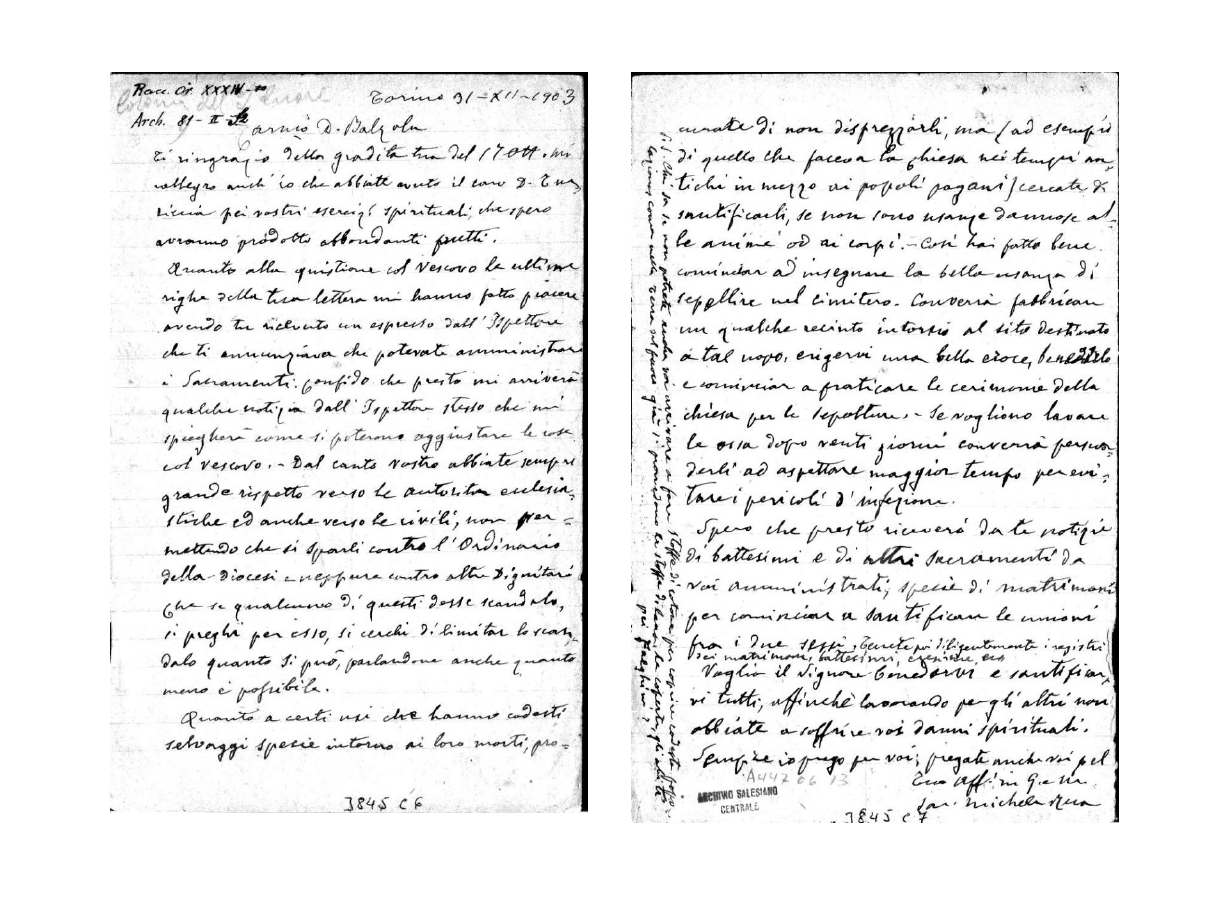 Racc. Or. XXXIV-10
Colonia del S. Cuore
Torino 31-XII-1903
Arch. 81-II
C armo D. Balzola
Ti ringrazio della gradita tua del 17 Ott. mi
rallegro anch'io che abbiate avuto il caro D. Tur=
riccia pei vostri esercizi spirituali, che spero
avranno prodotto abbondanti frutti.
Quanto alla quistione col Vescovo le ultime
righe della tua lettera mi hanno fatto piacere
avendo tu ricevuto un espresso dall'Ispettore
che ti annunziava che potevate amministrare
i Sacramenti. Confido che presto mi arriverà
qualche notizia dall'Ispettore stesso che mi
spiegherà come si poterono aggiustare le cose
col vescovo. - Dal canto vostro abbiate sempre
grande rispetto verso le autorità ecclesia=
stiche ed anche verso le civili, non per=
mettendo che si sparli contro l'Ordinario
della Diocesi e neppure contro altri Dignitari
Che se qualcuno di questi desse scandalo,
si preghi per esso, si cerchi di limitar lo scan=
dalo quanto si può, parlandone anche quanto
meno è possibile.
Quanto a certi usi che hanno codesti
selvaggi specie intorno ai loro morti, pro=
3845 C6
curate di non disprezzarli, ma (ad esempio
di quello che faceva la Chiesa nei tempi an=
tichi in mezzo ai popoli pagani) cercate di
santificarli, se non sono usanze dannose al=
le anime od ai corpi. - Così hai fatto bene
cominciar ad insegnare la bella usanza di
seppellire nel cimitero. Converrà fabbricare
un qualche recinto intorno al sito destinato
a tal uopo, erigervi una bella croce, benedirlo
e cominciar a praticare le cerimonie della
chiesa per le sepolture. - Se vogliono lavare
le ossa dopo venti giorni converrà persua=
derli ad aspettare maggior tempo per evi=
tare i pericoli d'infezione.
Spero che presto riceverò da te notizie
di battesimi e di altri Sacramenti da
voi amministrati, specie di matrimoni
per cominciar a santificare le unioni
fra i due sessi, tenete poi diligentemente i registri
dei matrimoni, battesimi, cresime, ecc
Voglia il Signore benedirvi e santificar=
vi tutti, affinchè lavorando per gli altri non
abbiate a soffrire voi danni spirituali.
Sempre io prego per voi; pregate anche voi pel
Tuo Aff.mo in G. e M.
Sac. Michele Rua
A4420613
ARCHIVIO SALESIANO
CENTRALE
3845 C7
potrete anche voi arrivare a fare stoffe di cotone per coprire codesti